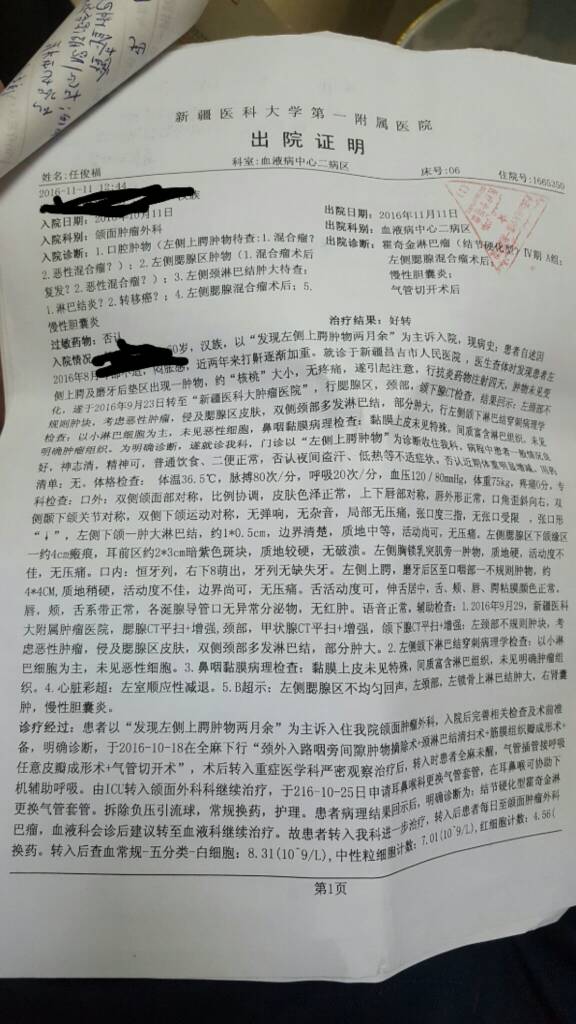 新疆医科大学第一附属医院
出院证明
科室:血液病中心二病区
姓名:任俊福 床号:06 住院号:1665350
2016-11-11 12:44 汉族
入院日期: 2016年10月11日
入院科别: 颌面肿瘤外科
入院诊断: 1.口腔肿物(左侧上腭肿物待查:1.混合瘤?
2.恶性混合瘤?); 2.左侧腮腺区肿物(1.混合瘤术后
复发?2.恶性混合瘤?); 3.左侧颈淋巴结肿大待查:
1.淋巴结炎?2.转移癌?; 4.左侧腮腺混合瘤术后; 5.
慢性胆囊炎
出院日期: 2016年11月11日
出院科别: 血液病中心二病区
出院诊断: 霍奇金淋巴瘤(结节硬化型)IV期 A组;
左侧腮腺混合瘤术后;
慢性胆囊炎;
气管切开术后
过敏药物: 否认
治疗结果: 好转
入院情况 60岁, 汉族, 以“发现左侧上腭肿物两月余”为主诉入院, 现病史: 患者自述因
2016年8月 闷胀感, 近两年来打鼾逐渐加重。就诊于新疆昌吉市人民医院, 医生查体时发现患者左
侧上腭及磨牙后垫区出现一肿物, 约“核桃”大小, 无疼痛, 遂引起注意, 行抗炎药物注射四天, 肿物未见变
化, 遂于2016年9月23日转至“新疆医科大肿瘤医院”, 行腮腺区, 颈部, 颌下腺CT检查, 结果回示: 左颈部不
规则肿块, 考虑恶性肿瘤, 侵及腮腺区皮肤, 双侧颈部多发淋巴结, 部分肿大, 行左侧颌下淋巴结穿刺病理学
检查: 以小淋巴细胞为主, 未见恶性细胞, 鼻咽黏膜病理检查: 黏膜上皮未见特殊, 间质富含淋巴组织, 未见
明确肿瘤组织。为明确诊断, 遂就诊我科, 门诊以“左侧上腭肿物”为诊断收住我科, 病程中患者一般情况良
好, 神志清, 精神可, 普通饮食、二便正常, 否认夜间盗汗、低热等不适症状, 否认近期体重明显增减。用药
清单: 无。体格检查: 体温36.5℃, 脉搏80次/分, 呼吸20次/分, 血压120/80mmHg, 体重75kg, 疼痛0分, 专
科检查: 口外: 双侧颌面部对称, 比例协调, 皮肤色泽正常, 上下唇部对称, 唇外形正常, 口角歪斜向右, 双
侧颞下颌关节对称, 双侧下颌运动对称, 无弹响, 无杂音, 局部无压痛, 张口度三指, 无张口受限, 张口形
“↓”, 左侧下颌一肿大淋巴结, 约1*0.5cm, 边界清楚, 质地中等, 活动尚可, 无压痛。左侧腮腺区下颌缘区
一约4cm瘢痕, 耳前区约2*3cm暗紫色斑块, 质地较硬, 无破溃。左侧胸锁乳突肌旁一肿物, 质地硬, 活动度不
佳, 无压痛。口内: 恒牙列, 右下8萌出, 牙列无缺失牙。左侧上腭, 磨牙后区至口咽部一不规则肿块, 约
4*4CM, 质地稍硬, 活动度不佳, 边界尚可, 无压痛。舌活动度可, 伸舌居中, 舌、颊、唇、腭粘膜颜色正常。
唇, 颊, 舌系带正常, 各涎腺导管口无异常分泌物, 无红肿。语音正常。辅助检查: 1.2016年9月29, 新疆医科
大附属肿瘤医院, 腮腺CT平扫+增强, 颈部, 甲状腺CT平扫+增强, 颌下腺CT平扫+增强: 左颈部不规则肿块, 考
虑恶性肿瘤, 侵及腮腺区皮肤, 双侧颈部多发淋巴结, 部分肿大。2.左侧颌下淋巴结穿刺病理学检查: 以小淋
巴细胞为主, 未见恶性细胞。3.鼻咽黏膜病理检查: 黏膜上皮未见特殊, 间质富含淋巴组织, 未见明确肿瘤组
织。4.心脏彩超: 左室顺应性减退。5.B超示: 左侧腮腺区不均匀回声, 左颈部, 左锁骨上淋巴结肿大, 右肾囊
肿, 慢性胆囊炎。
诊疗经过: 患者以“发现左侧上腭肿物两月余”为主诉入住我院颌面肿瘤外科, 入院后完善相关检查及术前准
备, 明确诊断, 于2016-10-18在全麻下行“颈外入路咽旁间隙肿物摘除术+颈淋巴结清扫术+筋膜组织瓣成形术+
任意皮瓣成形术+气管切开术”, 术后转入重症医学科严密观察治疗后, 转入时患者全麻未醒, 气管插管接呼吸
机辅助呼吸。由ICU转入颌面外科科继续治疗, 于216-10-25日申请耳鼻喉科更换气管套管, 在耳鼻喉可协助下
更换气管套管。拆除负压引流球, 常规换药, 护理。患者病理结果回示后, 明确诊断为: 结节硬化型霍奇金淋
巴瘤, 血液科会诊后建议转至血液科继续治疗。故患者转入我科进一步治疗, 转入后患者每日至颌面肿瘤外科
换药。转入后查血常规-五分类-白细胞: 8.31(10^9/L), 中性粒细胞计数: 7.01(10^9/L), 红细胞计数: 4.56(
第1页